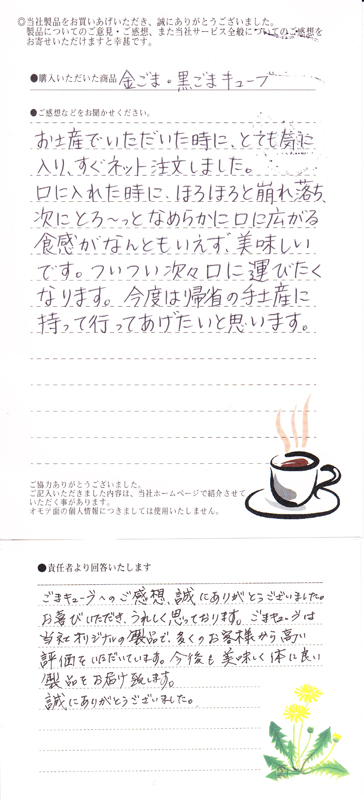 ◎当社製品をお買いあげいただき、誠にありがとうございました。
製品についてのご意見・ご感想、また当社サービス全般についてのご感想を
お寄せいただけますと幸甚です。
●購入いただいた商品 金ごま・黒ごまキューブ
●ご感想などをお聞かせください。
お土産でいただいた時に、とても気に
入り、すぐネット注文しました。
口に入れた時に、ほろほろと崩れ落ち、
次にとろ～っとなめらかに口に広がる
食感がなんともいえず、美味しい
です。ついつい次々口に運びたく
なります。今度は帰省の手土産に
持って行ってあげたいと思います。
ご協力ありがとうございました。
ご記入いただきました内容は、当社ホームページで紹介させて
いただく事があります。
オモテ面の個人情報につきましては使用いたしません。
●責任者より回答いたします
ごまキューブへのご感想、誠にありがとうございました。
お喜びいただき、うれしく思っております。ごまキューブは
当社オリジナルの製品で、多くのお客様から高い
評価をいただいています。今後も美味しく体に良い
製品をお届け致します。
誠にありがとうございました。